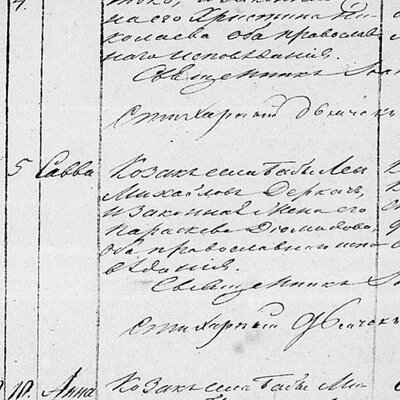 4.
на его Христина Ни-
колаева оба православ
наго исповѣданія.
Священникъ
Стихарный Дьячекъ
5 Савва Козакъ села Бабы Леѡ
Михайловъ Деркачъ,
и законная жена его
Параскева Дюмидова,
оба православнаго испо
вѣданія.
Священникъ
Стихарный Дьячокъ
10. Анна Козакъ села Бабы Ми-